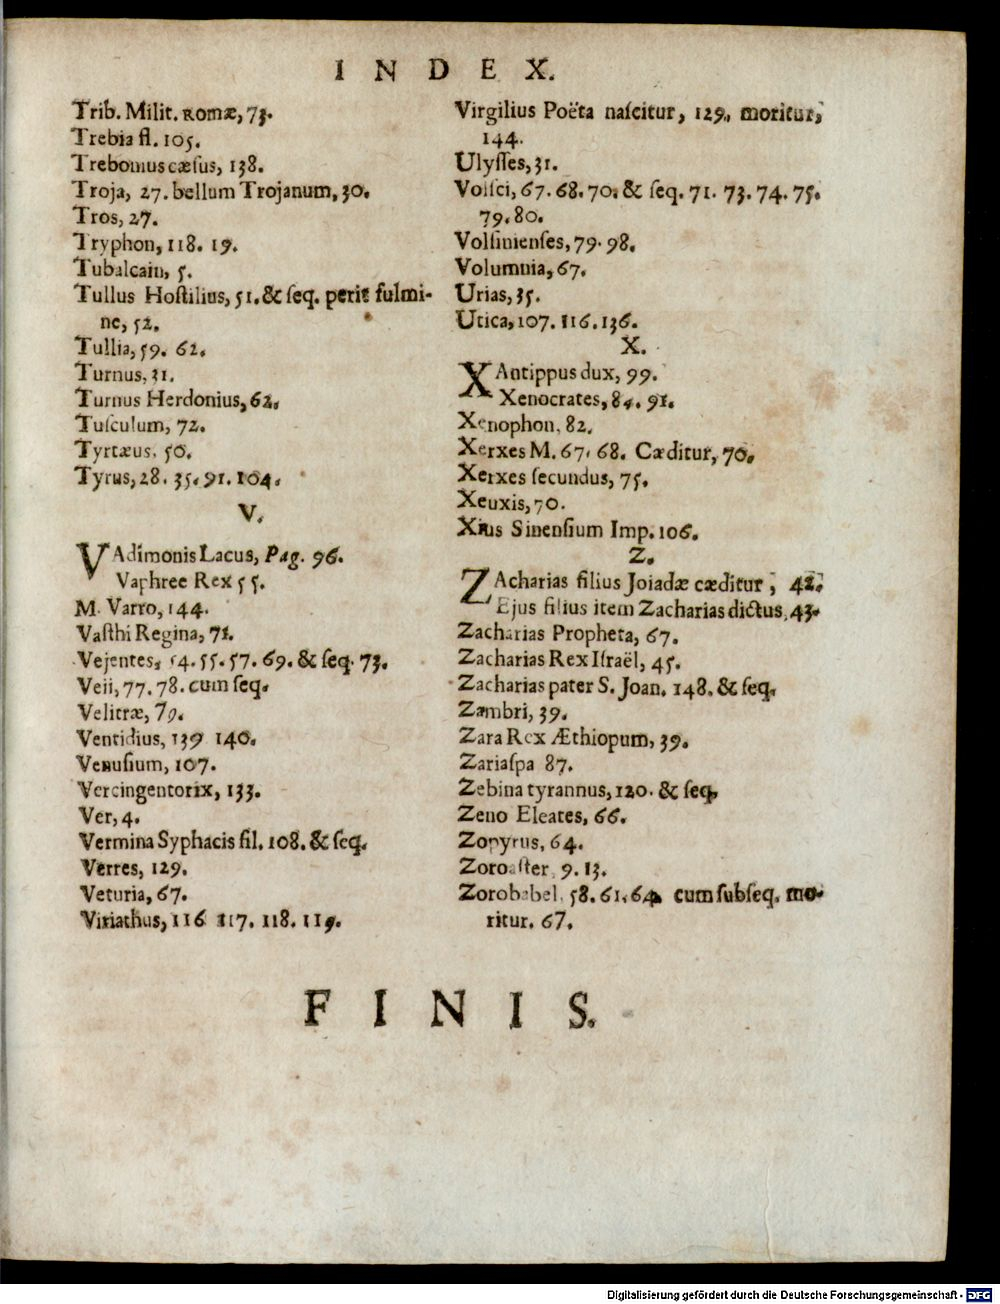 INDEX.
Trib. Milit. Romæ, 73.
Trebia fl. 105.
Trebonius cæſus, 138.
Troja, 27. bellum Trojanum, 30.
Tros, 27.
Tryphon, 118. 19.
Tubalcain, 5.
Tullus Hoſtilius, 51. & ſeq. perit fulmi-
ne, 52.
Tullia, 59. 62.
Turnus, 31.
Turnus Herdonius, 62.
Tuſculum, 72.
Tyrtæus, 50.
Tyrus, 28. 35. 91. 104.
V.
VAdimonis Lacus, Pag. 96.
Vaphree Rex 55.
M. Varro, 144.
Vaſthi Regina, 71.
Vejentes, 54. 55. 57. 69. & ſeq. 73.
Veii, 77. 78. cum ſeq.
Velitræ, 79.
Ventidius, 139 140.
Venuſium, 107.
Vercingentorix, 133.
Ver, 4.
Vermina Syphacis fil. 108. & ſeq.
Verres, 129.
Veturia, 67.
Viriathus, 116 117. 118. 119.
Virgilius Poëta naſcitur, 129. moritur,
144.
Ulyſſes, 31.
Volſci, 67. 68. 70. & ſeq. 71. 73. 74. 75.
79. 80.
Volſinienſes, 79. 98.
Volumnia, 67.
Urias, 35.
Utica, 107. 116. 136.
X.
XAntippus dux, 99.
Xenocrates, 84. 91.
Xenophon, 82.
Xerxes M. 67. 68. Cæditur, 70.
Xerxes ſecundus, 75.
Xeuxis, 70.
Xius Sinenſium Imp. 106.
Z.
ZAcharias filius Joiadæ cæditur, 42.
Ejus filius item Zacharias dictus, 43.
Zacharias Propheta, 67.
Zacharias Rex Iſraël, 45.
Zacharias pater S. Joan. 148. & ſeq.
Zambri, 39.
Zara Rex Æthiopum, 39.
Zariaſpa 87.
Zebina tyrannus, 120. & ſeq.
Zeno Eleates, 66.
Zopyrus, 64.
Zoroaſter, 9. 13.
Zorobabel, 58. 61. 64. cum ſubſeq. mo-
ritur. 67.
FINIS.
Digitalisierung gefördert durch die Deutsche Forschungsgemeinschaft - DFG